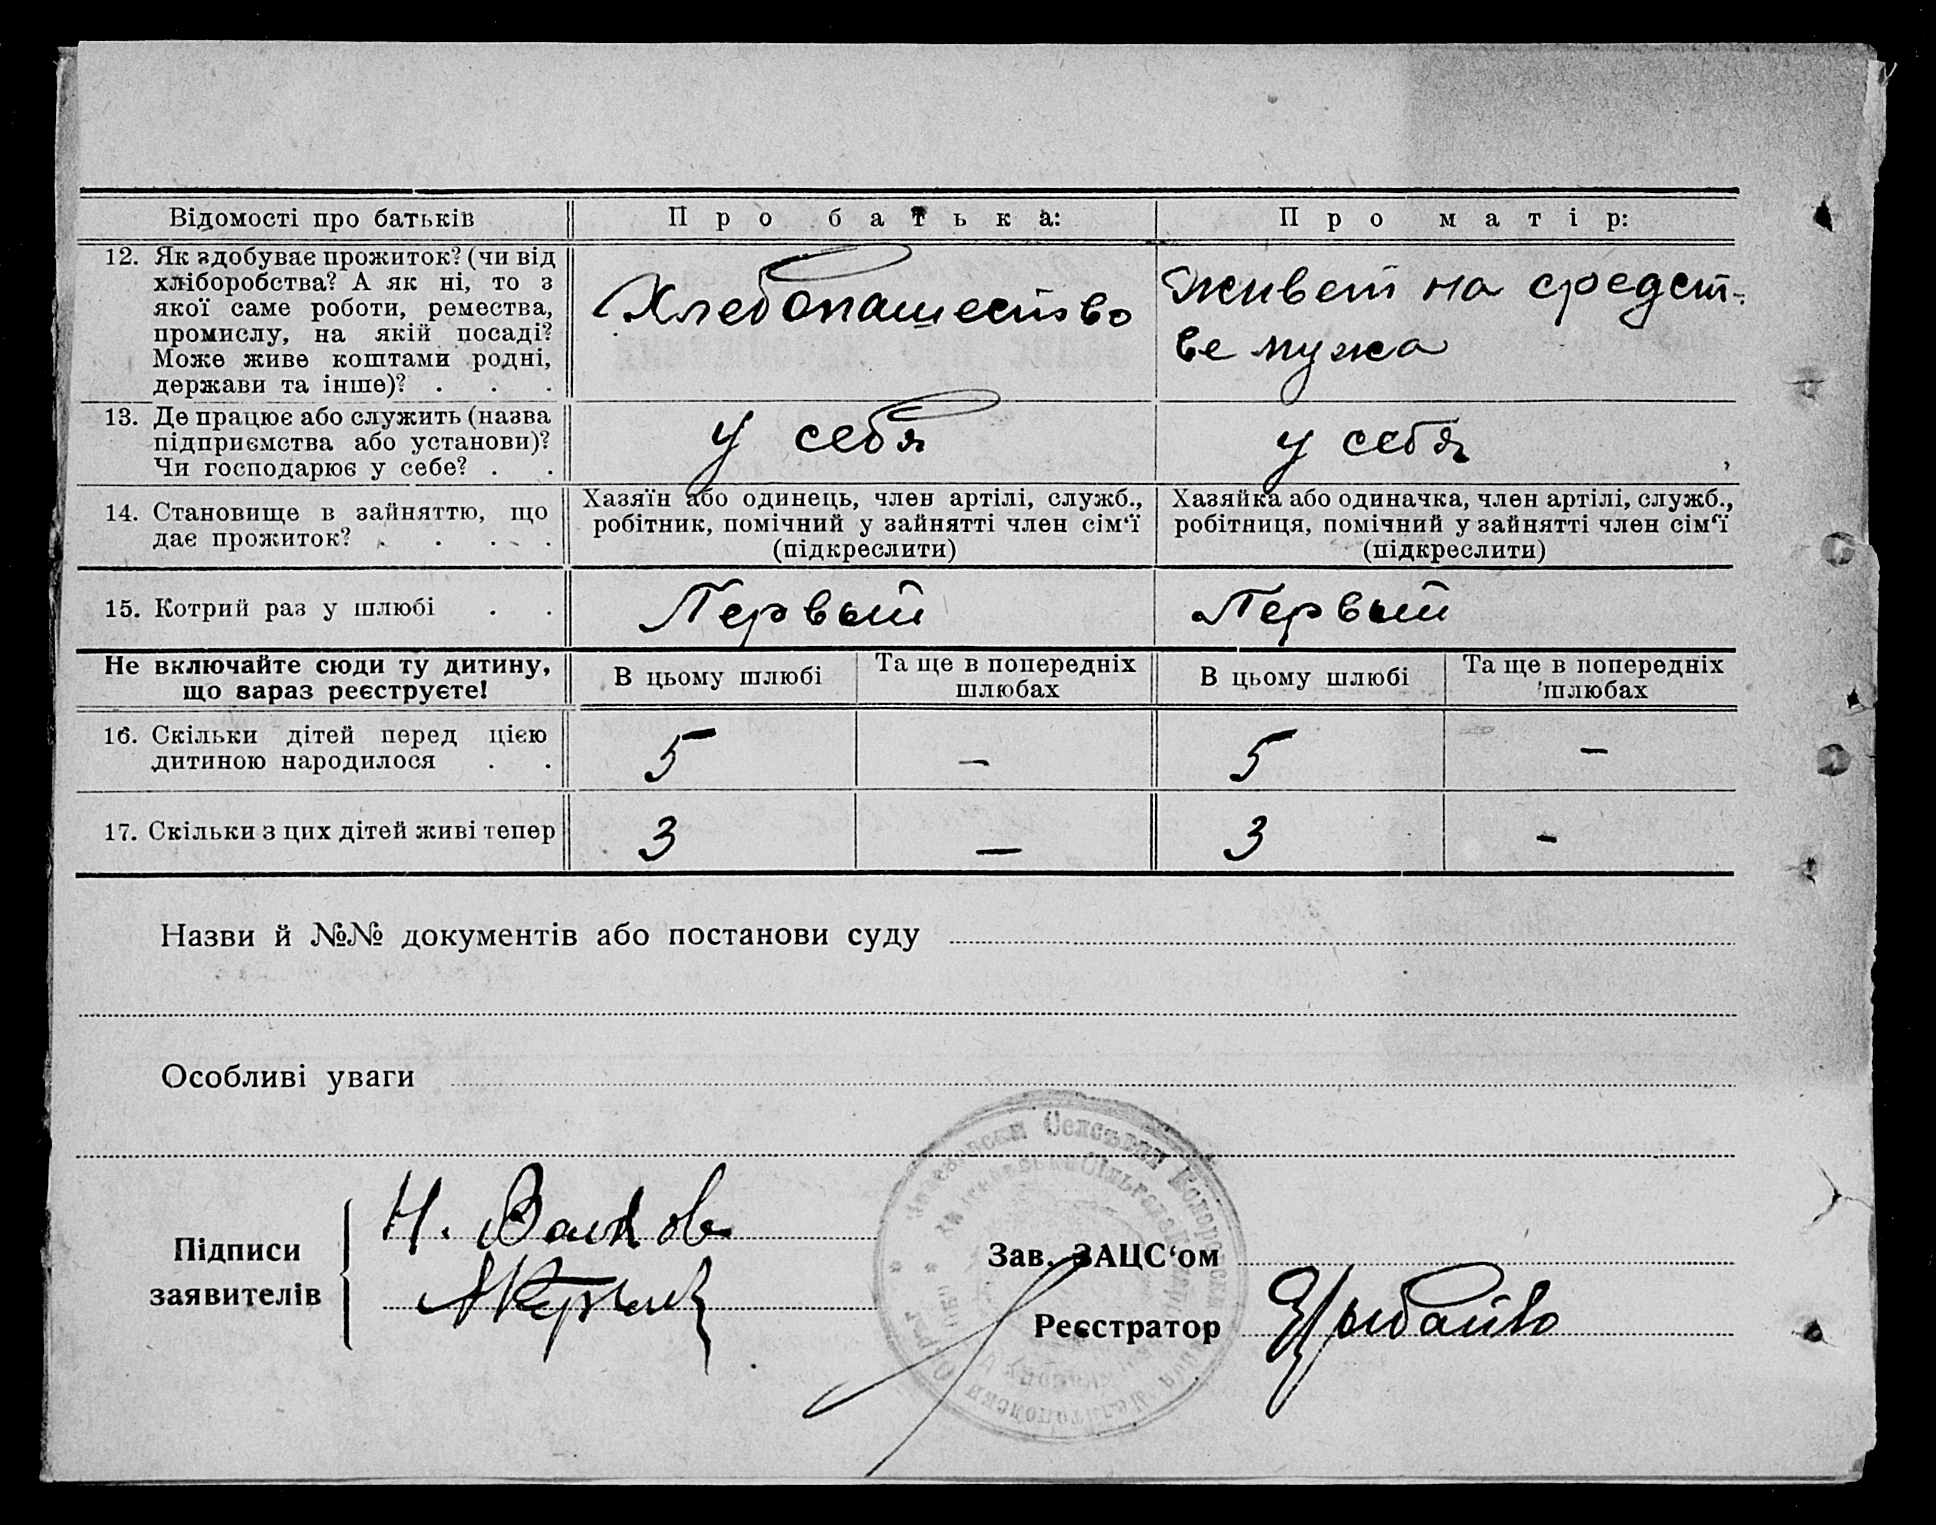 Відомості про батьків
Про батька:
Про матір:
12. Як здобуває прожиток? (чи від
хліборобства? А як ні, то з
якої саме роботи, ремества,
промислу, на якій посаді?
Може живе коштами родні,
держави та інше)? . . .
Хлебопашество
Живет на средст-
ве мужа
13. Де працює або служить (назва
підприємства або установи)?
Чи господарює у себе? . .
у себя
у себя
14. Становище в зайняттю, що
дає прожиток? . . . .
Хазяїн або одинець, член артілі, служб.,
робітник, помічний у зайнятті член сім‘ї
(підкреслити)
Хазяйка або одиначка, член артілі, служб.,
робітниця, помічний у зайнятті член сім‘ї
(підкреслити)
15. Котрий раз у шлюбі . .
Первый
Первый
Не включайте сюди ту дитину,
що зараз реєструєте!
В цьому шлюбі
Та ще в попередніх
шлюбах
В цьому шлюбі
Та ще в попередніх
шлюбах
16. Скільки дітей перед цією
дитиною народилося . .
5
–
5
–
17. Скільки з цих дітей живі тепер
3
–
3
–
Назви й №№ документів або постанови суду
Особливі уваги
Підписи
заявителів
Н. Волков
Зав. ЗАЦС‘ом
Реєстратор